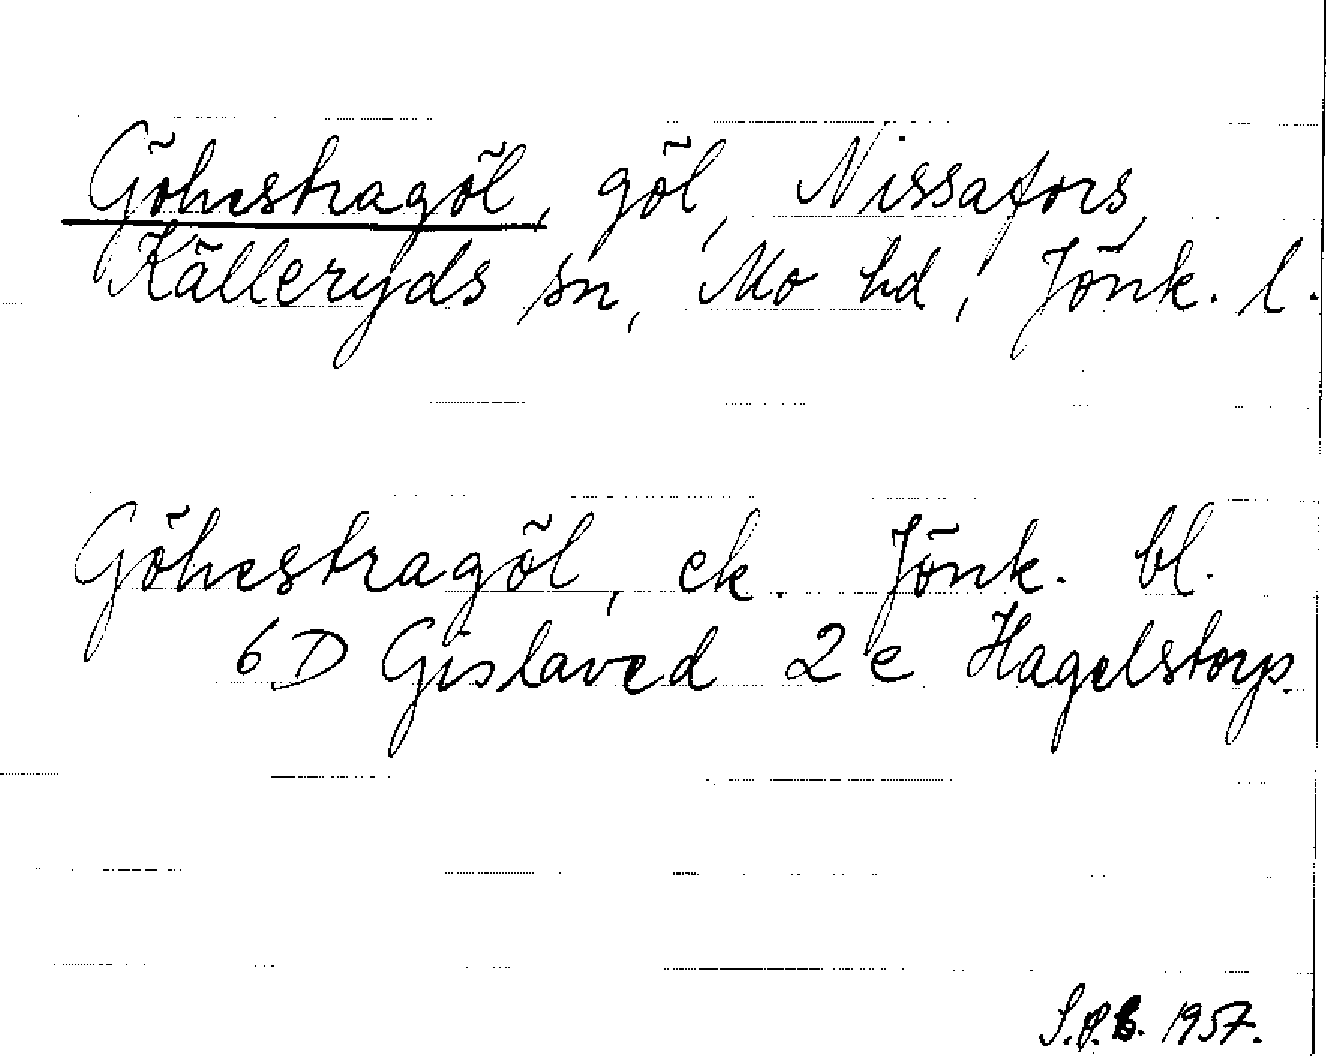 Göhestragöl, göl, Nissafors,
Källeryds sn, Mo hd, Jönk. l.
Göhestragöl, ek. Jönk. bl.
6 D Gislaved 2 e Hagelstorp.
S.P.B. 1957.